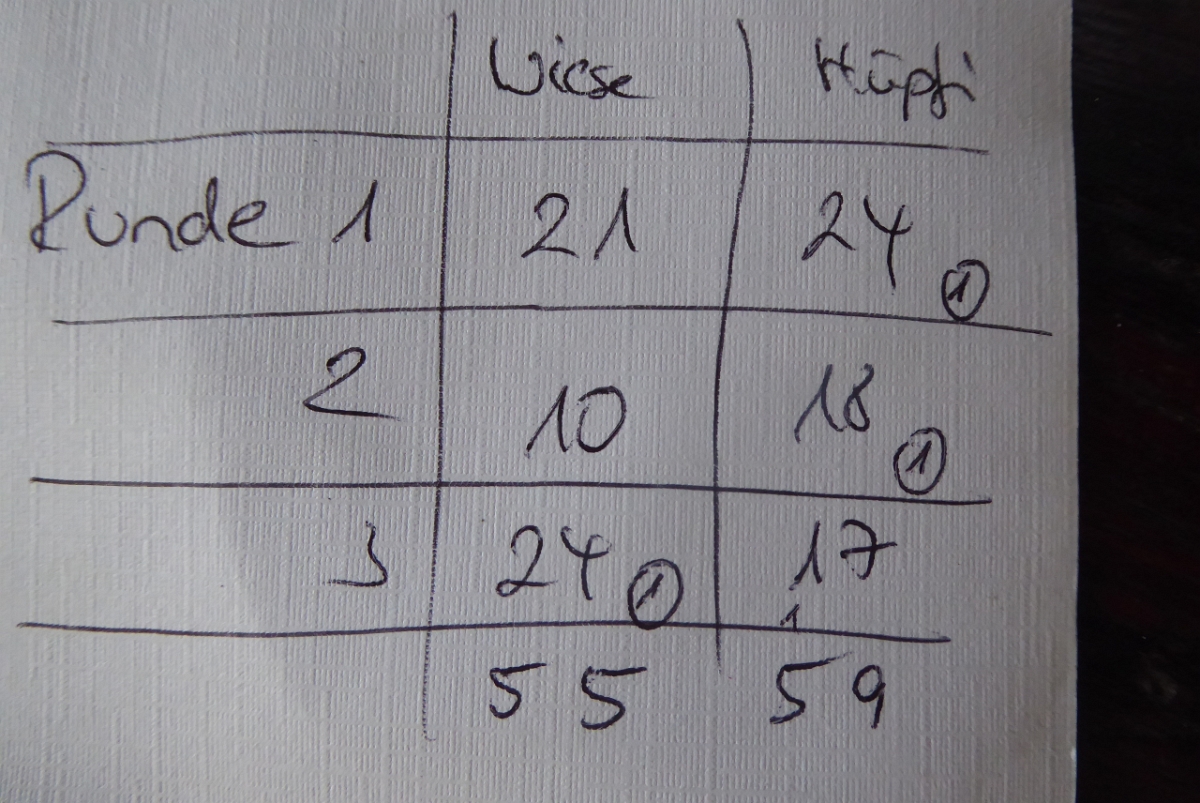 Wiese Hüpfi
Runde 1 21 24 ①
2 10 18 ①
3 24 ① 17
1
55 59